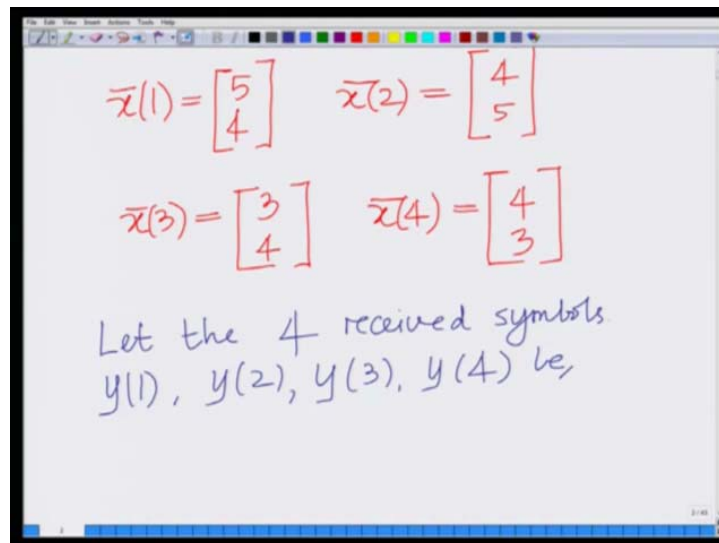 File Edit View Insert Actions Tools Help
x̄(1) = [5 4] x̄(2) = [4 5]
x̄(3) = [3 4] x̄(4) = [4 3]
Let the 4 received symbols
y(1), y(2), y(3), y(4) be,
2